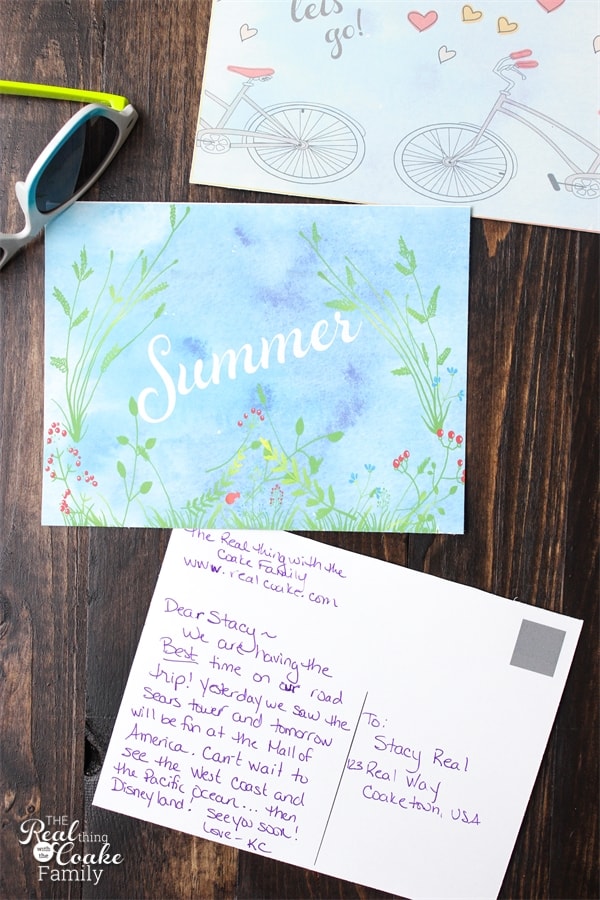 let's
go!
Summer
The Real thing with the
Coake Family
www.realcoake.com
Dear Stacy~
We are having the
Best time on our road
trip! Yesterday we saw the
sears tower and tomorrow
will be fun at the Mall of
America. Can't wait to
see the West Coast and
the Pacific Ocean... then
Disneyland! See you soon!
Love - KC
To:
Stacy Real
123 Real Way
Coaketown, USA
THE
Real thing
with the
Coake
Family